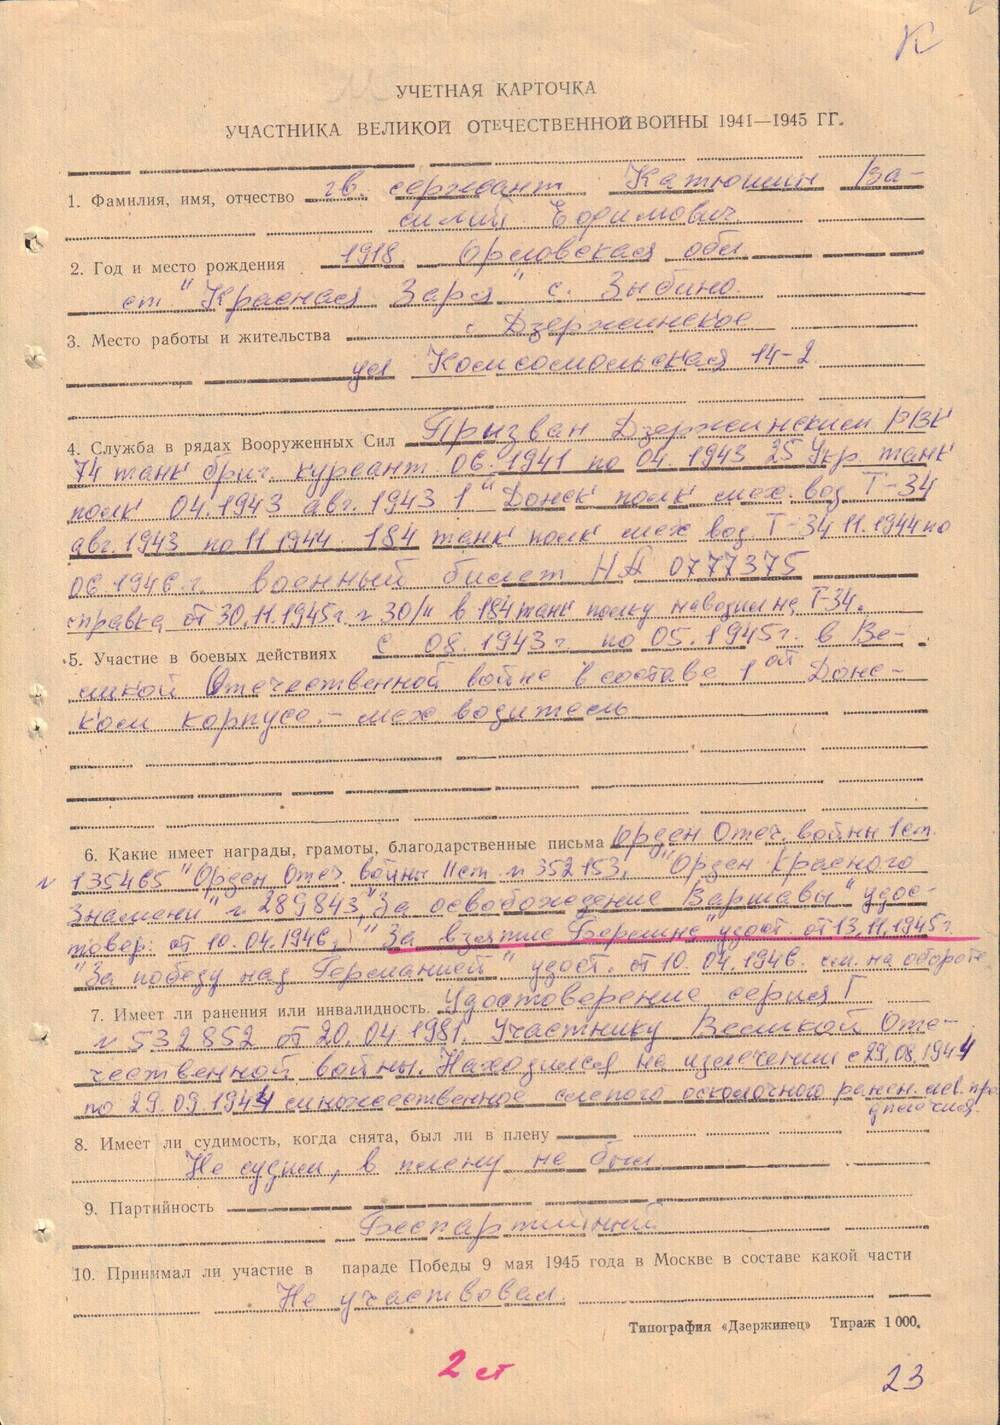 К
УЧЕТНАЯ КАРТОЧКА
УЧАСТНИКА ВЕЛИКОЙ ОТЕЧЕСТВЕННОЙ ВОЙНЫ 1941—1945 ГГ.
1. Фамилия, имя, отчество гв. сержант Катюшин Ва-
силий Ефимович
2. Год и место рождения 1918 Орловская обл.
ст. "Красная Заря" с. Зыбино.
3. Место работы и жительства с. Дзержинское
ул Комсомольская 14-2
4. Служба в рядах Вооруженных Сил Призван Дзержинским РВК
74 танк. бриг. курсант 06.1941 по 04.1943 25 Укр. танк
полк 04.1943 авг. 1943 1й Донск полк мех. вод. Т-34
авг. 1943 по 11 1944. 184 танк полк мех вод. Т-34 11.1944 по
06.1946 г. военный билет НА 0777375
справка от 30.11.1945 г. № 30/н в 184 танк полку наводил на Т-34.
5. Участие в боевых действиях с 08.1943 г. по 05.1945 г. в Ве-
ликой Отечественной войне в составе 1ой Донс-
ком корпусе. - мех. водитель
6. Какие имеет награды, грамоты, благодарственные письма Орден Отеч. войны 1 ст.
№ 135465 "Орден Отеч. войны II ст. № 352153, "Орден Красного
Знамени" № 289843, "За освобождение Варшавы" удос-
товер. от 10.04.1946, "За взятие Берлина" удост. от 13.11.1945 г.
"За победу над Германией" удост. от 10.04.1946. см. на обороте
7. Имеет ли ранения или инвалидность. Удостоверение серия Г
№ 532852 от 20.04.1981. Участнику Великой Оте-
чественной войны. Находился на излечении с 29.08.1944
по 29.09.1944 множественное слепого осколочного ранен. лев. пред
плечия.
8. Имеет ли судимость, когда снята, был ли в плену
Не судим, в плену не был
9. Партийность
Беспартийный
10. Принимал ли участие в параде Победы 9 мая 1945 года в Москве в составе какой части
Не участвовал.
Типография «Дзержинец» Тираж 1 000.
2 ст
23